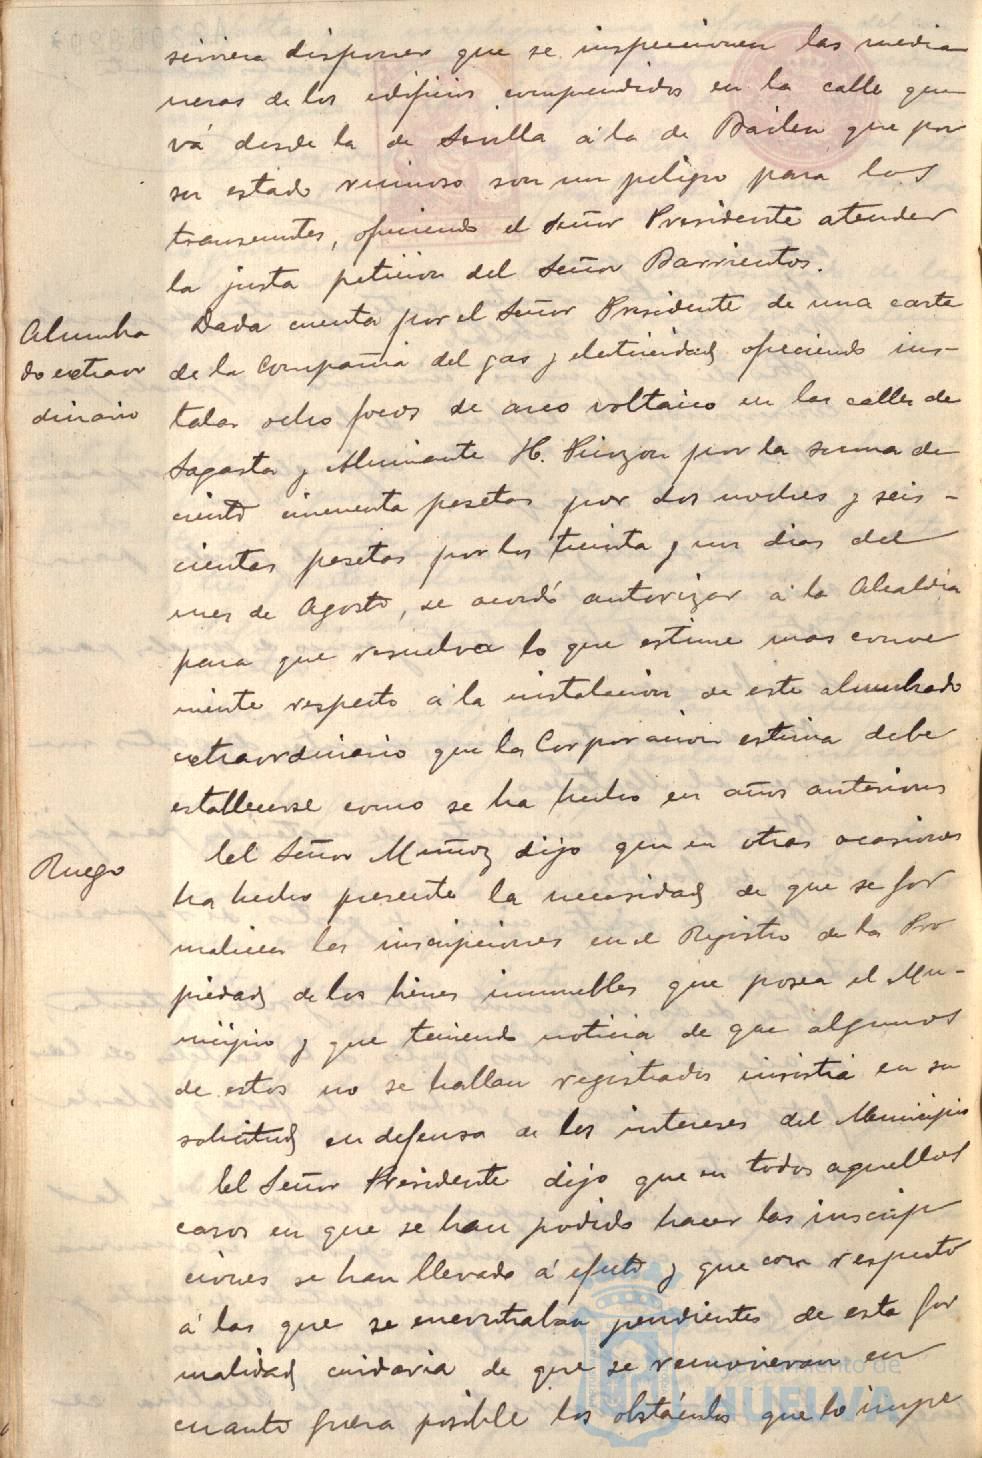 sirviera disponer que se inspeccionen las media
neras de los edificios comprendidos en la calle que
vá desde la de Sevilla á la de Bailen que por
su estado ruinoso son un peligro para los
transeuntes, ofreciendo el Señor Presidente atender
la justa peticion del Señor Barrientos.
Alumbra
do extraor
dinario
Dada cuenta por el Señor Presidente de una carta
de la Compañia del gas y eletricidad ofreciendo ins-
talar ocho focos de arco voltaico en las calles de
Sagasta y Almirante H. Pinzon por la suma de
ciento cincuenta pesetas por dos noches y seis-
cientas pesetas por los treinta y un dias del
mes de Agosto, se acordó autorizar á la Alcaldia
para que resuelva lo que estime mas conve
niente respecto á la instalacion de este alumbrado
extraordinario que la Corporacion estima debe
establecerse como se ha hecho en años anteriores
Ruego
El Señor Muñoz dijo que en otras ocasiones
ha hecho presente la necesidad de que se for
malicen las inscripciones en el Registro de la Pro
piedad de los bienes inmuebles que posea el Mu-
nicipio y que teniendo noticia de que algunos
de estos no se hallan registrados insistia en su
solicitud en defensa de los intereses del Municipio
El Señor Presidente dijo que en todos aquellos
casos en que se han podido hacer las inscrip
ciones se han llevado á efecto y que con respecto
á las que se encontraban pendientes de esta for
malidad cuidaria de que se removieran en
cuanto fuera posible los obstáculos que lo impe
Ayuntamiento de
HUELVA